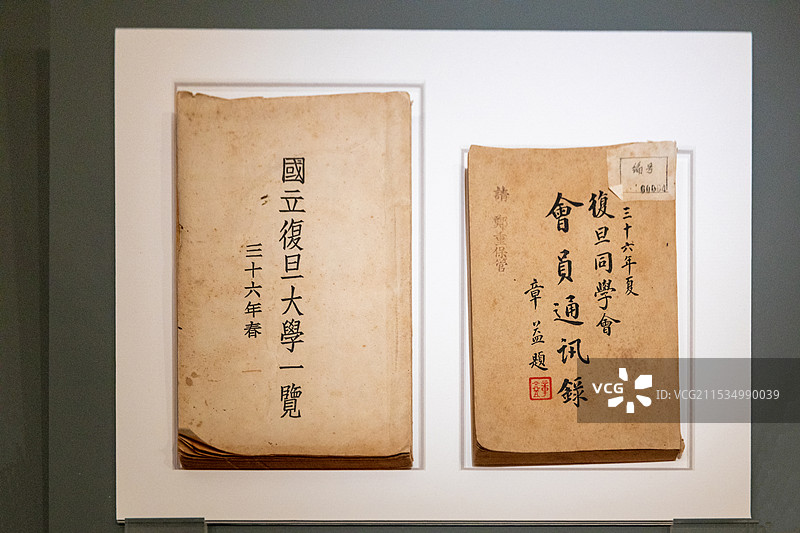 國立復旦大學一覽
三十六年春
編号
00004
三十六年夏
復旦同學會
會員通訊錄
章益題
請鄭重保管
VCG
ID: VCG211534990039